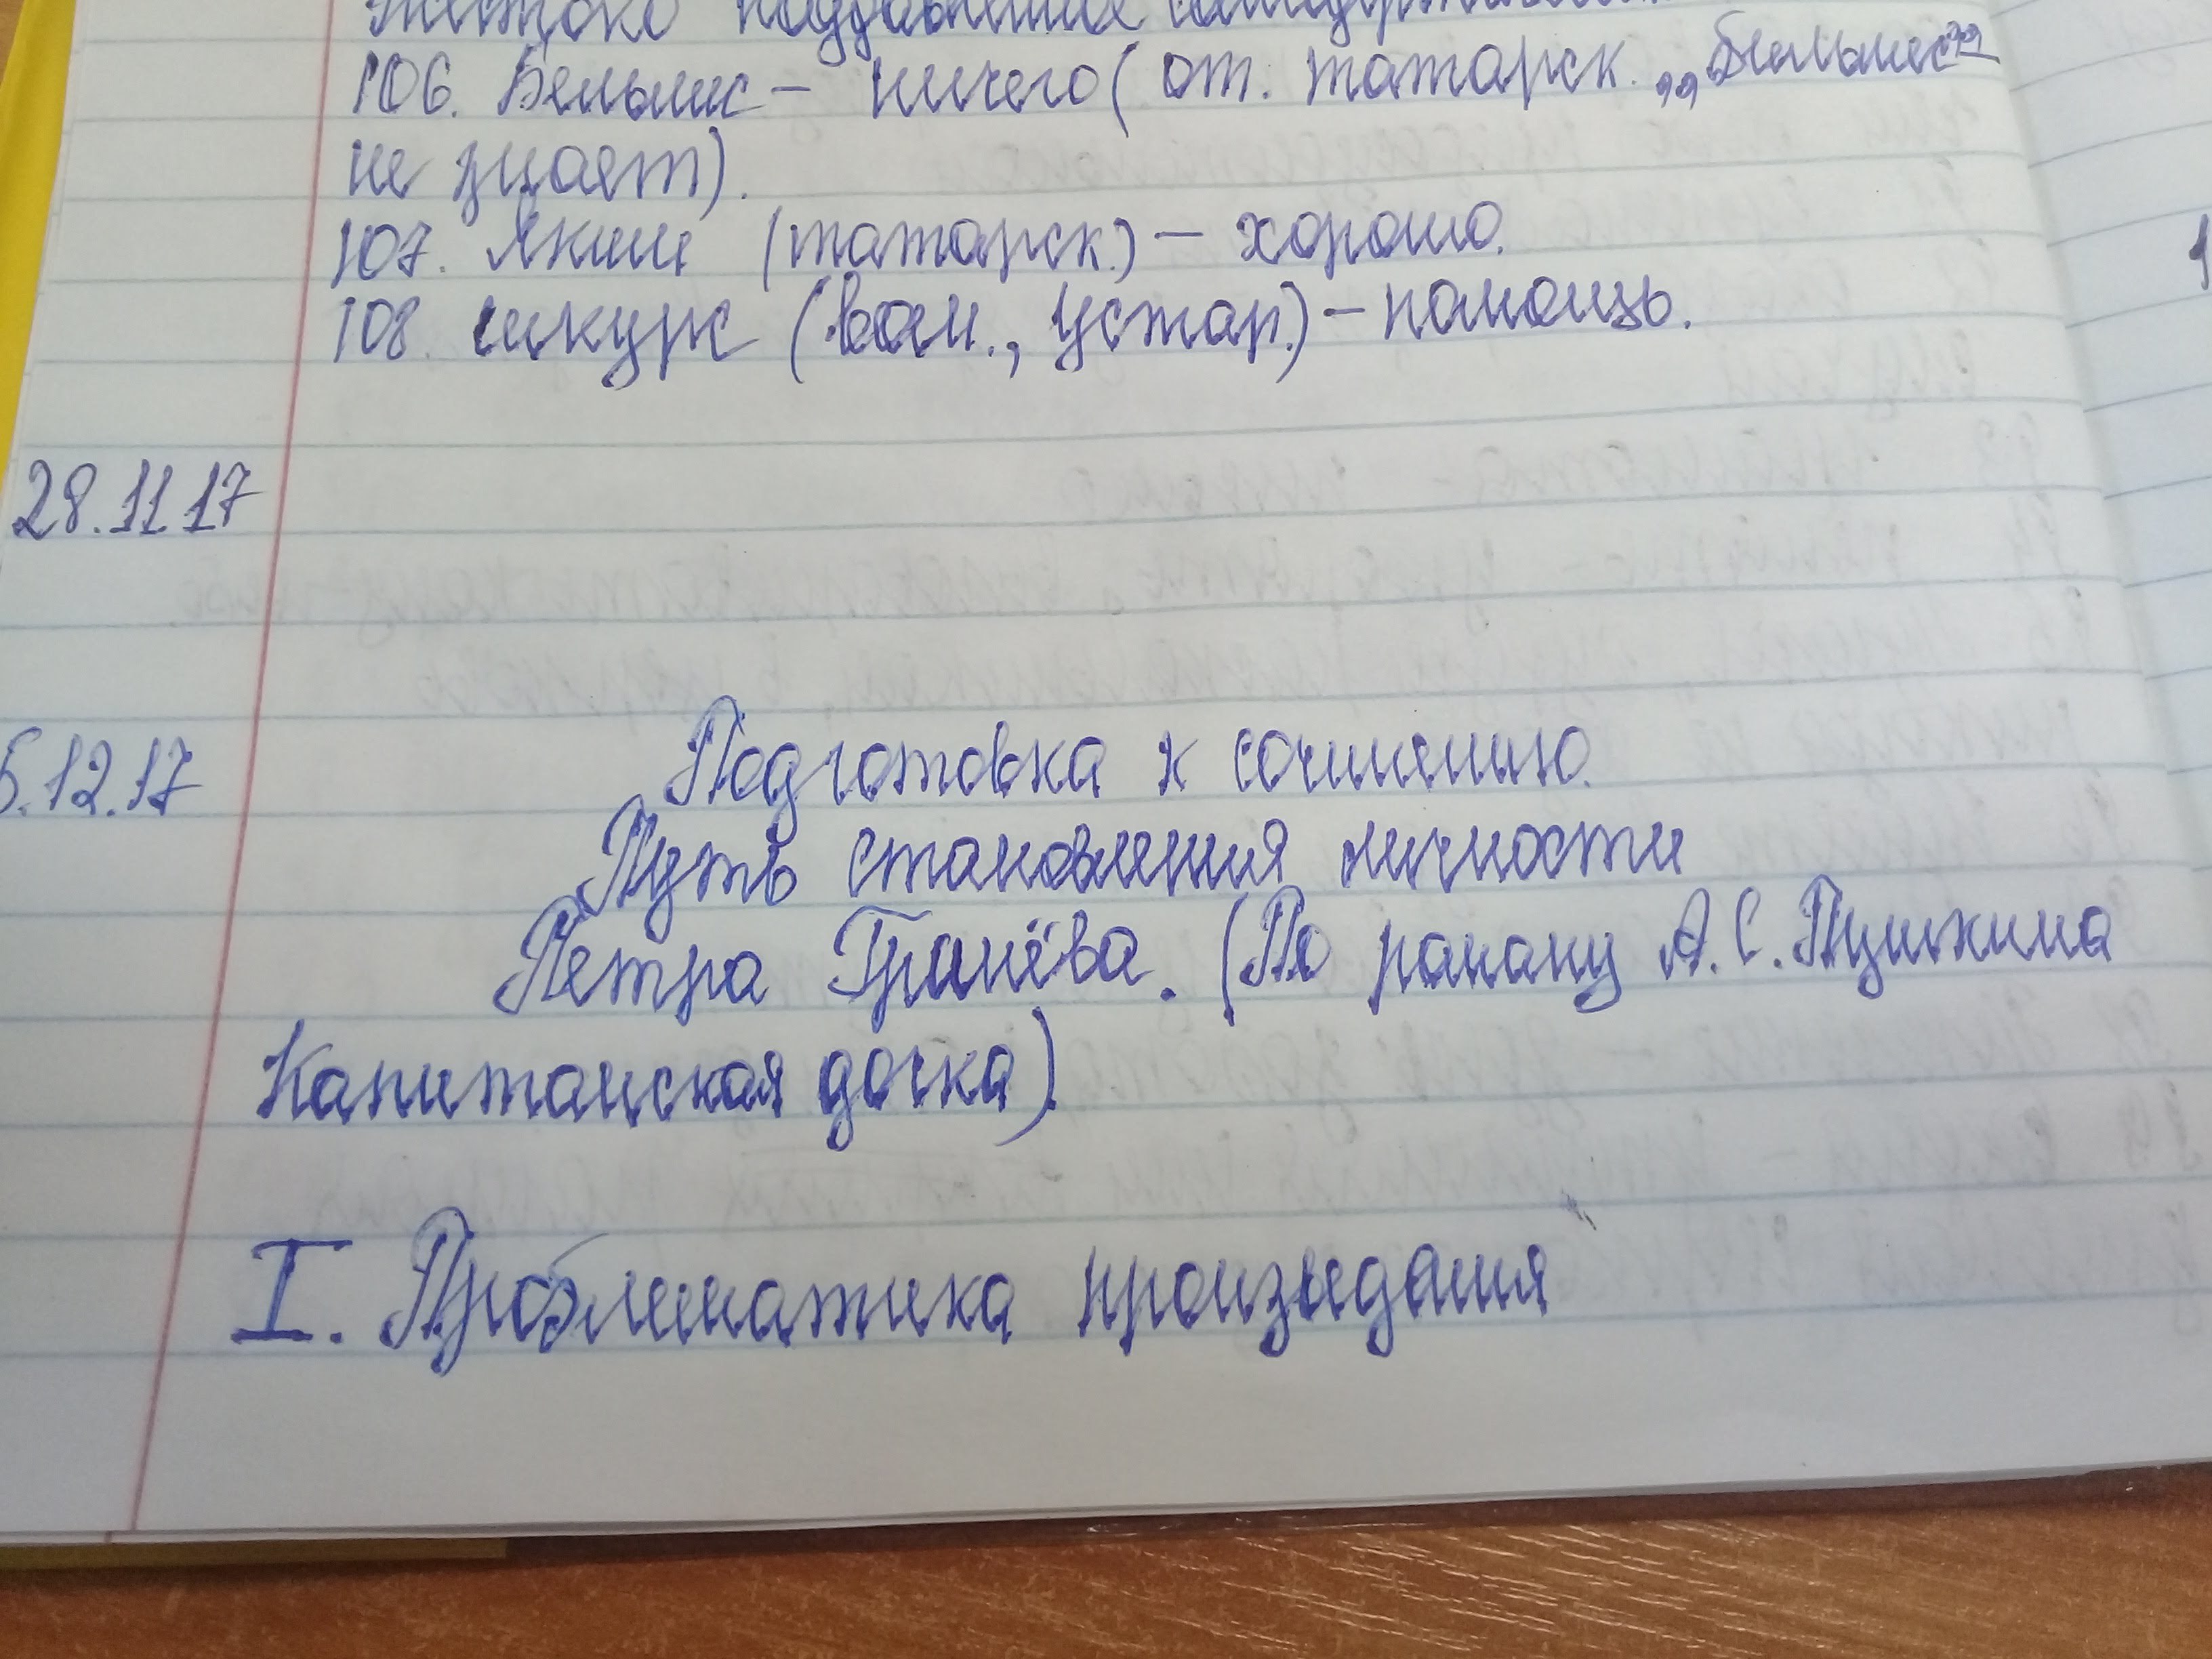 жестоко подавленное
106. Бельмес – ничего (от. татарск. „бильмес"
не знает).
107. Якши (татарск.) – хорошо.
108. сикурс (воен., устар.) – помощь.
28.11.17
5.12.17 Подготовка к сочинению.
Путь становления личности
Петра Гринёва. (По роману А.С. Пушкина
Капитанская дочка).
I. Проблематика произведания
1